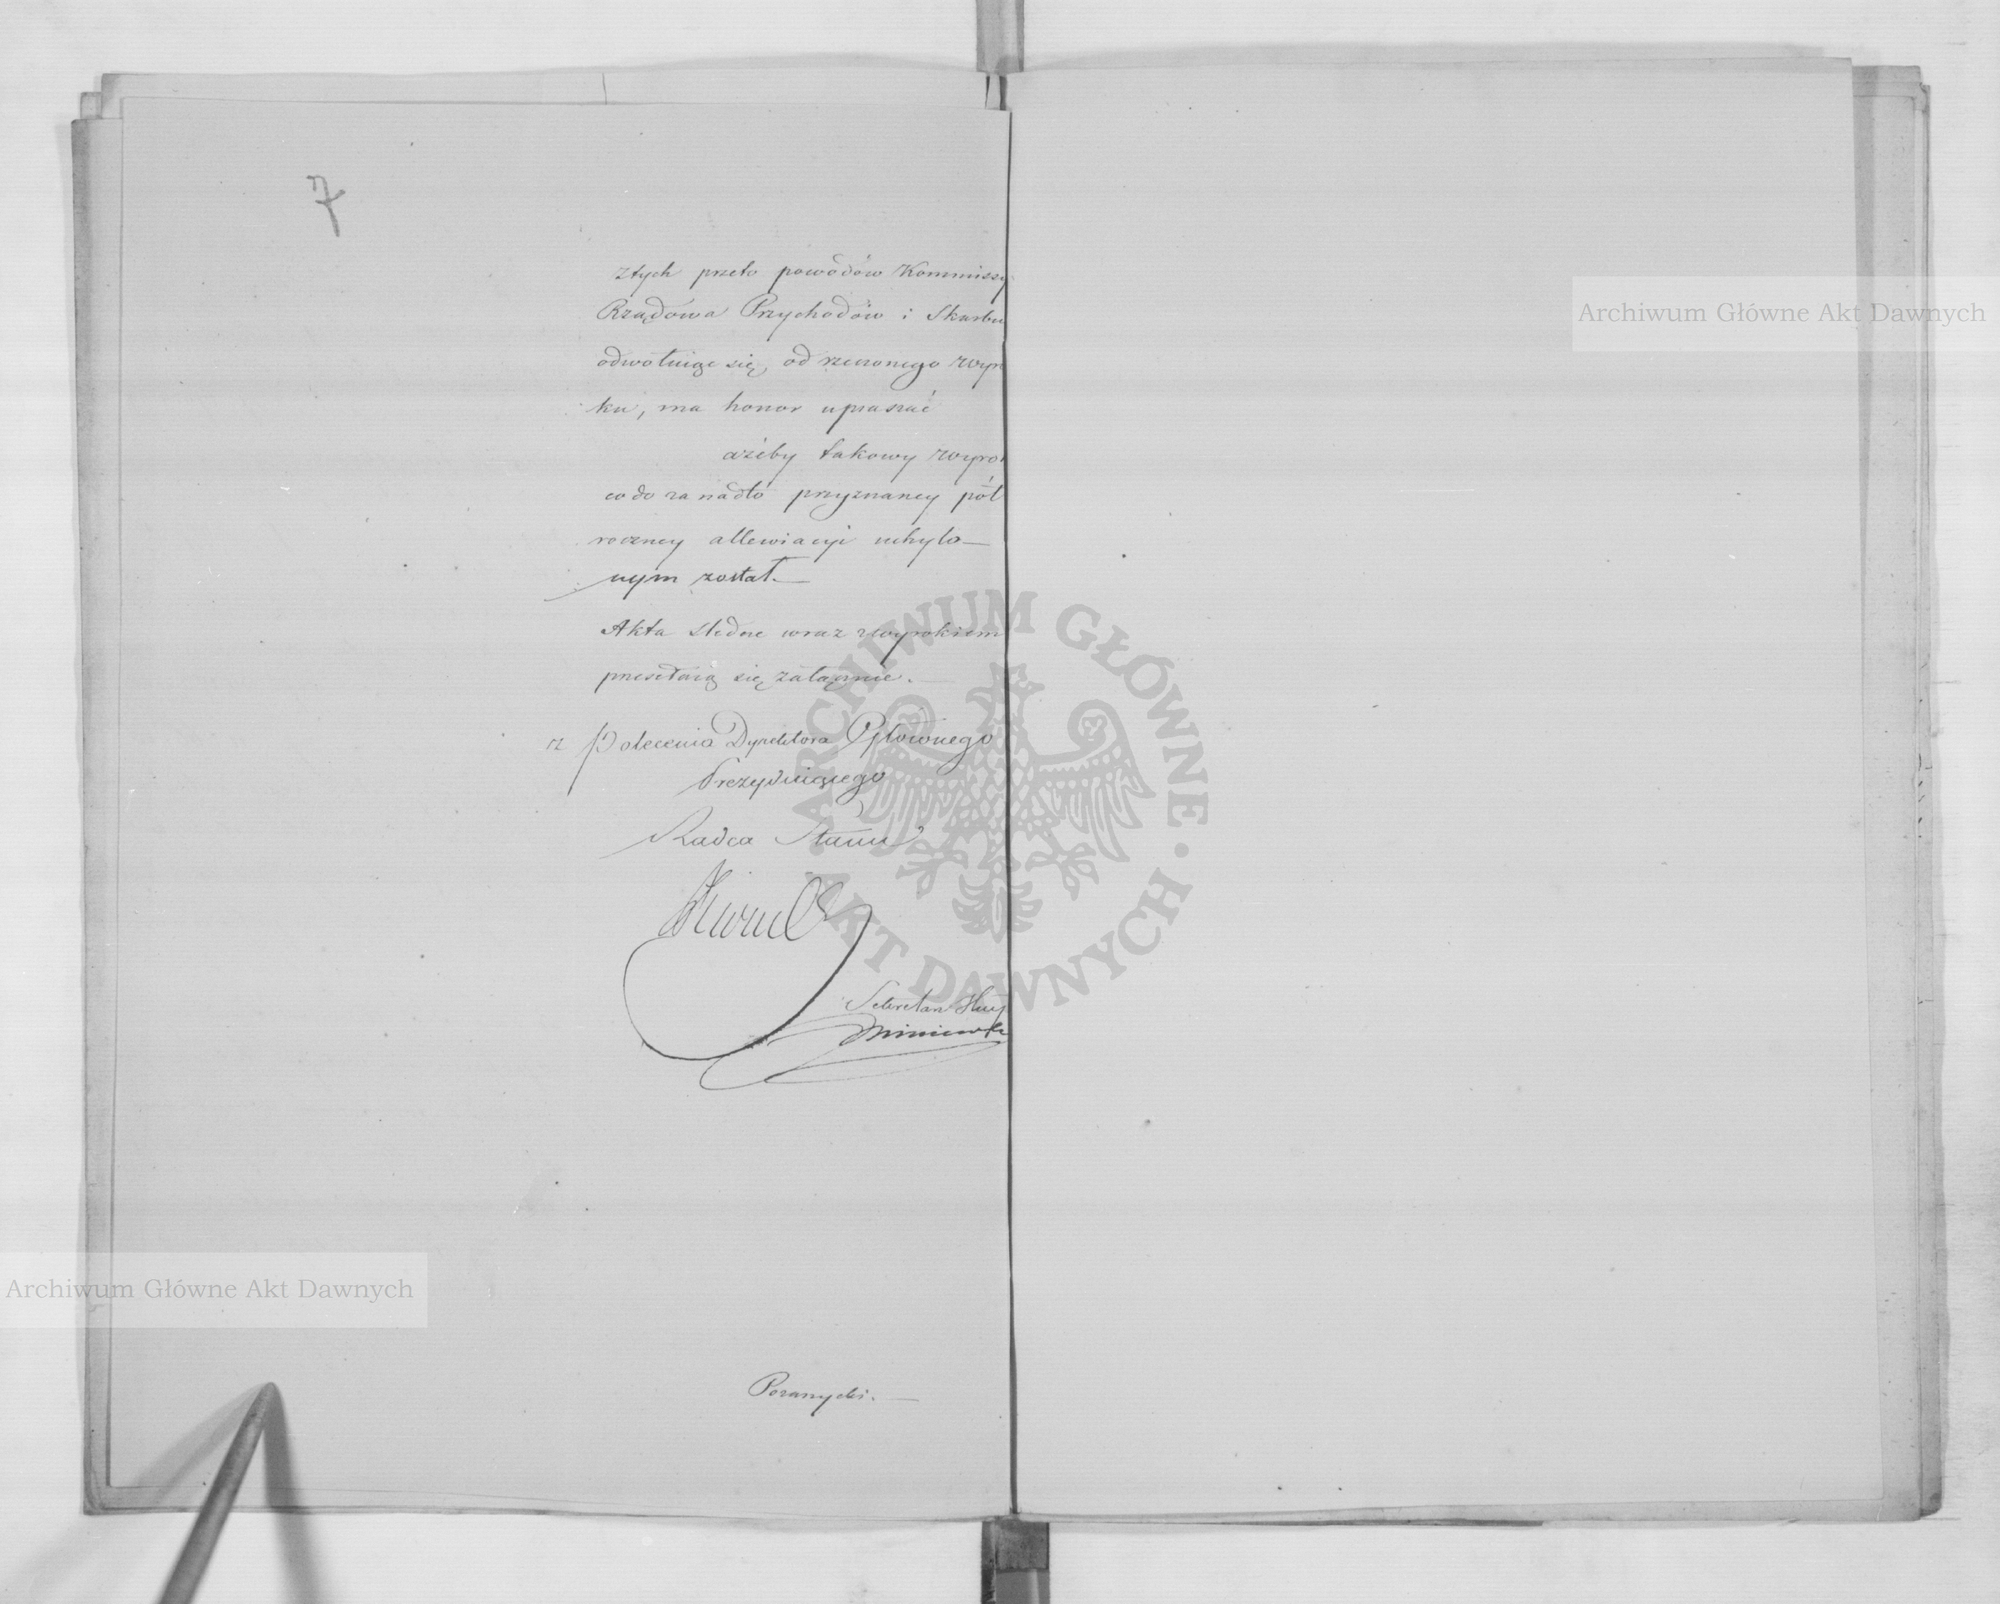 7
ztych przeto powodów Kommissy
Rządowa Przychodów i Skarbu
odwołuiąc się, od rzeczonego wyro
ku, ma honor upraszać
ażeby takowy wyrok
co do za nadto przyznaney pół
roczney allewiacyi uchylo—
nym został.—
Akta śledne wraz zwyrokiem
przesełaią się załącznie.—
z Polecenia Dyrektora Głównego
Prezyduiącego
Radca Stanu
Sekretarz
Archiwum Główne Akt Dawnych
Archiwum Główne Akt Dawnych
ARCHIWUM GŁÓWNE · AKT DAWNYCH ·